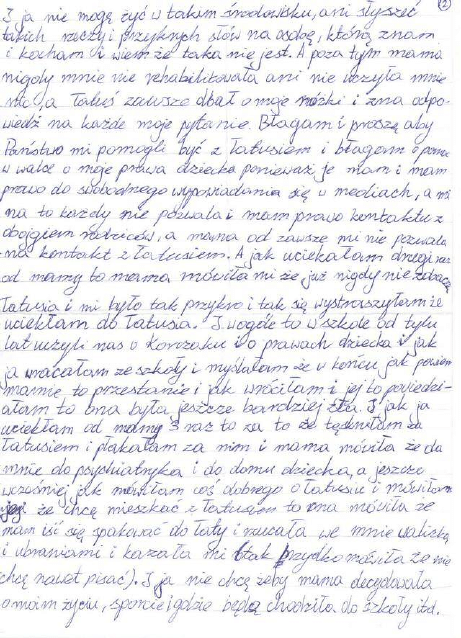 (2)
I ja nie mogę żyć w takim środowisku, ani słyszeć
takich rzeczy i przykrych słów na osobę, którą znam
i kocham i wiem że taka nie jest. A poza tym mama
nigdy mnie nie rehabilitowała ani nie uczyła mnie
nic, a Tatuś zawsze dbał o moje nóżki i zna odpo-
wiedź na każde moje pytanie. Błagam i proszę aby
Państwo mi pomogli być z Tatusiem i błagam o pomoc
w walce o moje prawa dziecka ponieważ je mam i mam
prawo do swobodnego wypowiadania się w mediach, a mi
na to każdy nie pozwala i mam prawo kontaktu z
obojgiem rodziców, a mama od zawsze mi nie pozwala
na kontakt z Tatusiem. A jak uciekałam drugi raz
od mamy to mama mówiła mi że już nigdy nie zobaczę
Tatusia i mi było tak przykro i tak się wystraszyłam że
uciekłam do Tatusia. I wogóle to w szkole od tylu
lat uczyli nas o Korczaku i o prawach dziecka i jak
ja wracałam ze szkoły i myślałam że w końcu jak powiem
mamie to przestanie i jak wróciłam i jej to powiedzi-
ałam to ona była jeszcze bardziej zła. I jak ja
uciekłam od mamy 3 raz to za to że tęskniłam za
Tatusiem i płakałam za nim i mama mówiła że da
mnie do psychiatryka i do domu dziecka, a jeszcze
wcześniej jak mówiłam coś dobrego o Tatusiu i mówiłam
jej że chcę mieszkać z Tatusiem to ona mówiła że
mam iść się spakować do Taty i rzucała we mnie walizką
i ubraniami i kazała mi (tak brzydko mówiła że nie
chcę nawet pisać). I ja nie chcę żeby mama decydowała
o moim życiu, sporcie i gdzie będę chodziła do szkoły itd.